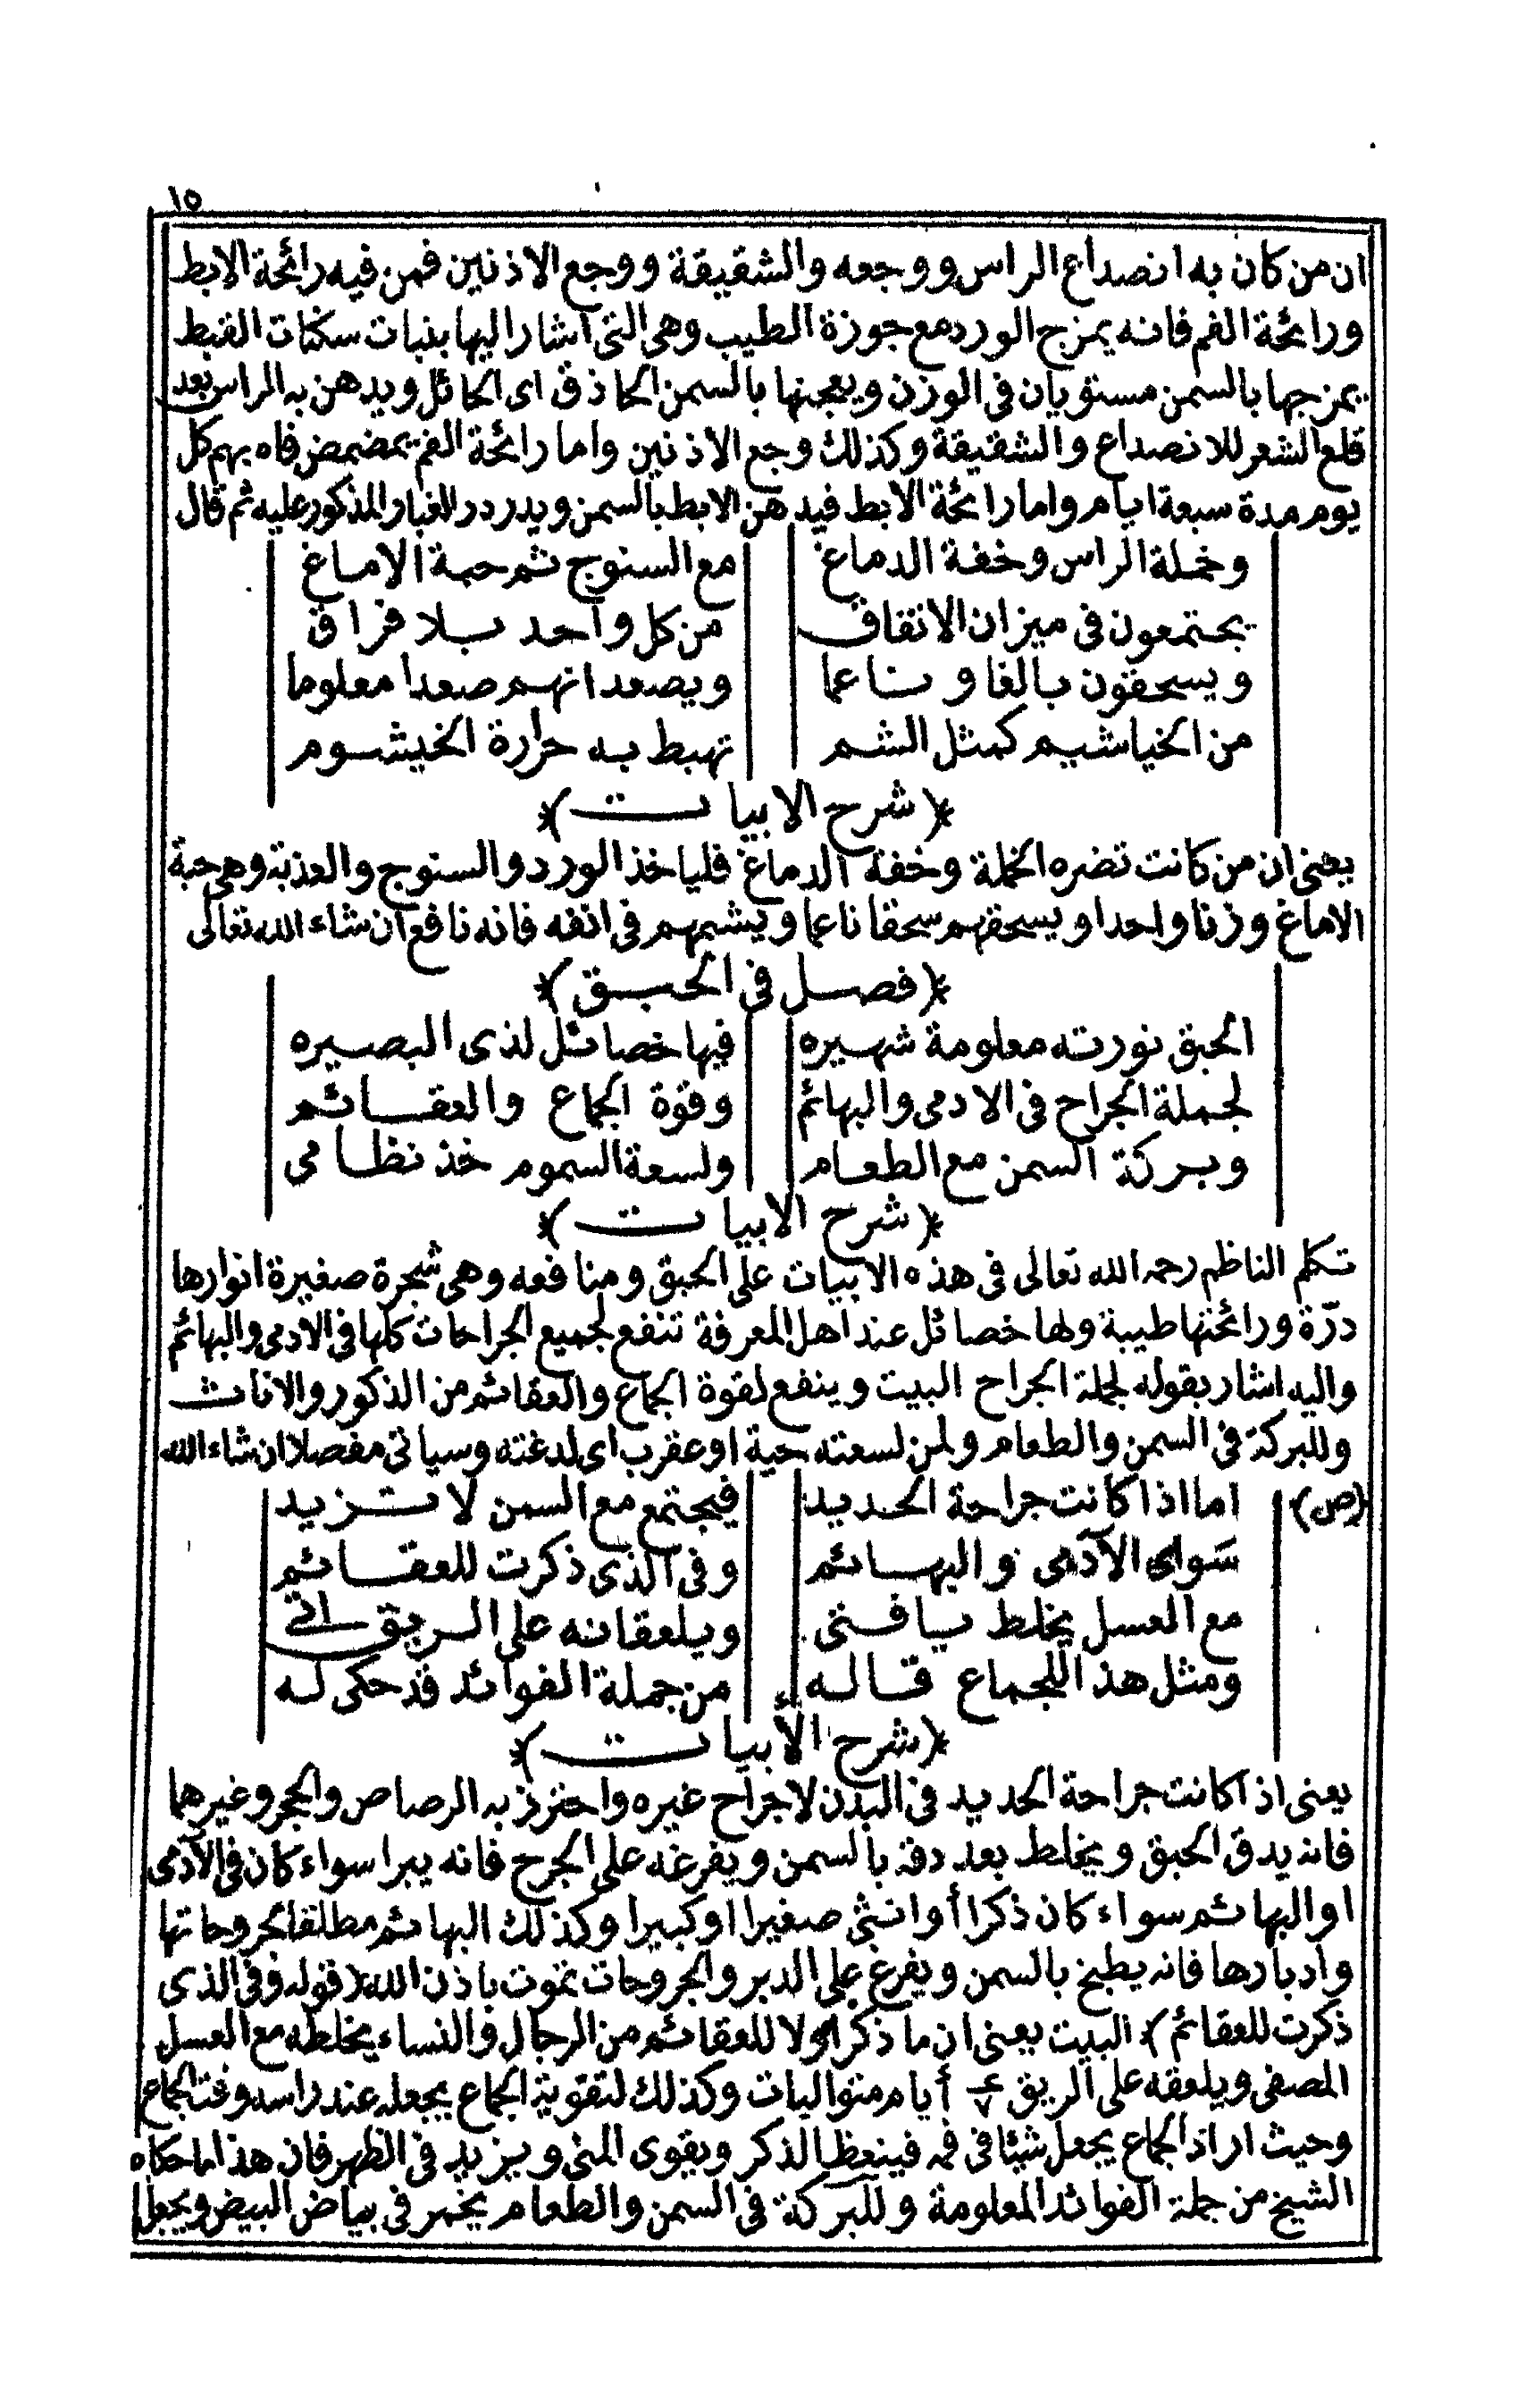 ١٥
ان من كان به انصداع الراس ووجعه والشقيقة ووجع الاذنين فمن فيه رائحة الابط
ورائحة الفم فانه يمزج الورد مع جوزة الطيب وهى التى اشار اليها بنبات سكنات القبط
يمزجها بالسمن مستويان فى الوزن ويعجنها بالسمن الحاذق اى الحائل ويدهن به الراس بعد
قلع الشعر للانصداع والشقيقة وكذلك وجع الاذنين واما رائحة الفم يمضمض فاه بهم كل
يوم مدة سبعة ايام واما رائحة الابط فيدهن الابط بالسمن ويدردر الغبار المذكور عليه ثم قال
وخملة الراس وخفة الدماغ مع السنوج ثم حبة الاماغ
يجتمعون فى ميزان الاتفاق من كل واحد بلا فراق
ويسحقون بالغا وناعما ويصعدانهم صعدا معلوما
من الخياشيم كمثل الشم تهبط به حرارة الخيشوم
﴿شرح الابيات﴾
يعنى ان من كانت تضره الخملة وخفة الدماغ فلياخذ الورد والسنوج والعذبة وهى حبة
الاماغ وزنا واحدا ويسحقهم سحقا ناعما ويشمهم فى انفه فانه نافع ان شاء الله تعالى
﴿فصل فى الحبق﴾
الحبق نورته معلومة شهيره فيها خصائل لذى البصيره
لجملة الجراح فى الادمى والبهائم وقوة الجماع والعقائم
وبركة السمن مع الطعام ولسعة السموم خذ نظامى
﴿شرح الابيات﴾
تكلم الناظم رحمه الله تعالى فى هذه الابيات على الحبق ومنافعه وهى شجرة صغيرة انوارها
درّة ورائحتها طيبة ولها خصائل عند اهل المعرفة تنفع لجميع الجراحات كلها فى الادمى والبهائم
واليه اشار بقوله لجملة الجراح البيت وينفع لقوة الجماع والعقائم من الذكور والاناث
وللبركة فى السمن والطعام ولمن لسعته حية او عقرب اى لدغته وسياتى مفصلا ان شاء الله
﴿ص﴾ اما اذا كانت جراحة الحديد فيجتمع مع السمن لا تزيد
سَواى الآدمى والبهائم وفى الذى ذكرت للعقائم
مع العسل يخلط يا فتى ويلعقانه على الريق اتى
ومثل هذا للجماع قاله من جملة الفوائد قد حكى له
﴿شرح الأبيات﴾
يعنى اذا كانت جراحة الحديد فى البدن لا جراح غيره واحترز به الرصاص والحجر وغيرهما
فانه يدق الحبق ويخلط بعد دقه بالسمن ويفرغه على الجرح فانه يبرا سواء كان فى الآدمى
او البهائم سواء كان ذكرا أو انثى صغيرا او كبيرا وكذلك البهائم مطلقا لجروحاتها
وادبارها فانه يطبخ بالسمن ويفرغ على الدبر والجروحات تموت باذن الله ﴿قوله وفى الذى
ذكرت للعقائم﴾ البيت يعنى ان ما ذكر اولا للعقائم من الرجال والنساء يخلطه مع العسل
المصفى ويلعقه على الريق أيام متواليات وكذلك لتقوية الجماع يجعله عند راسه وقت الجماع
وحيث اراد الجماع يجعل شيئا فى فمه فينعظ الذكر ويقوى المنى ويزيد فى الظهر فان هذا ما حكاه
الشيخ من جملة الفوائد المعلومة وللبركة فى السمن والطعام يخمر فى بياض البيض ويجعل